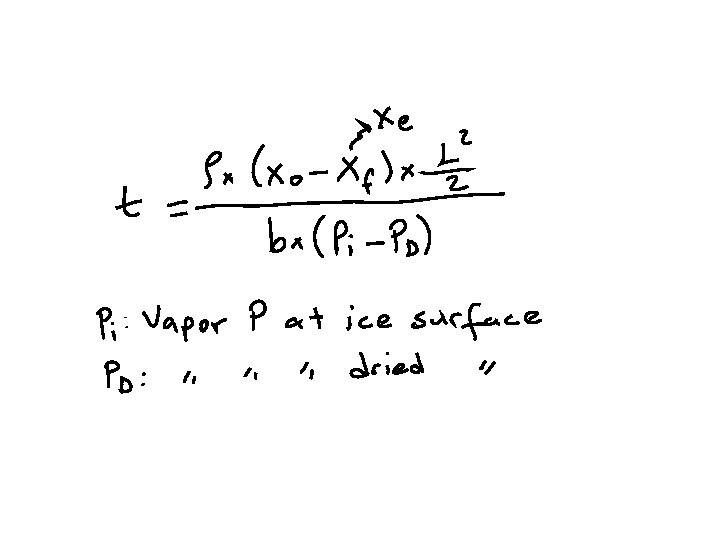 xe
t = ρ × (x₀ - x_f) × L²/2 / b × (Pᵢ - P_D)
Pᵢ: Vapor P at ice surface
P_D: " " " dried "